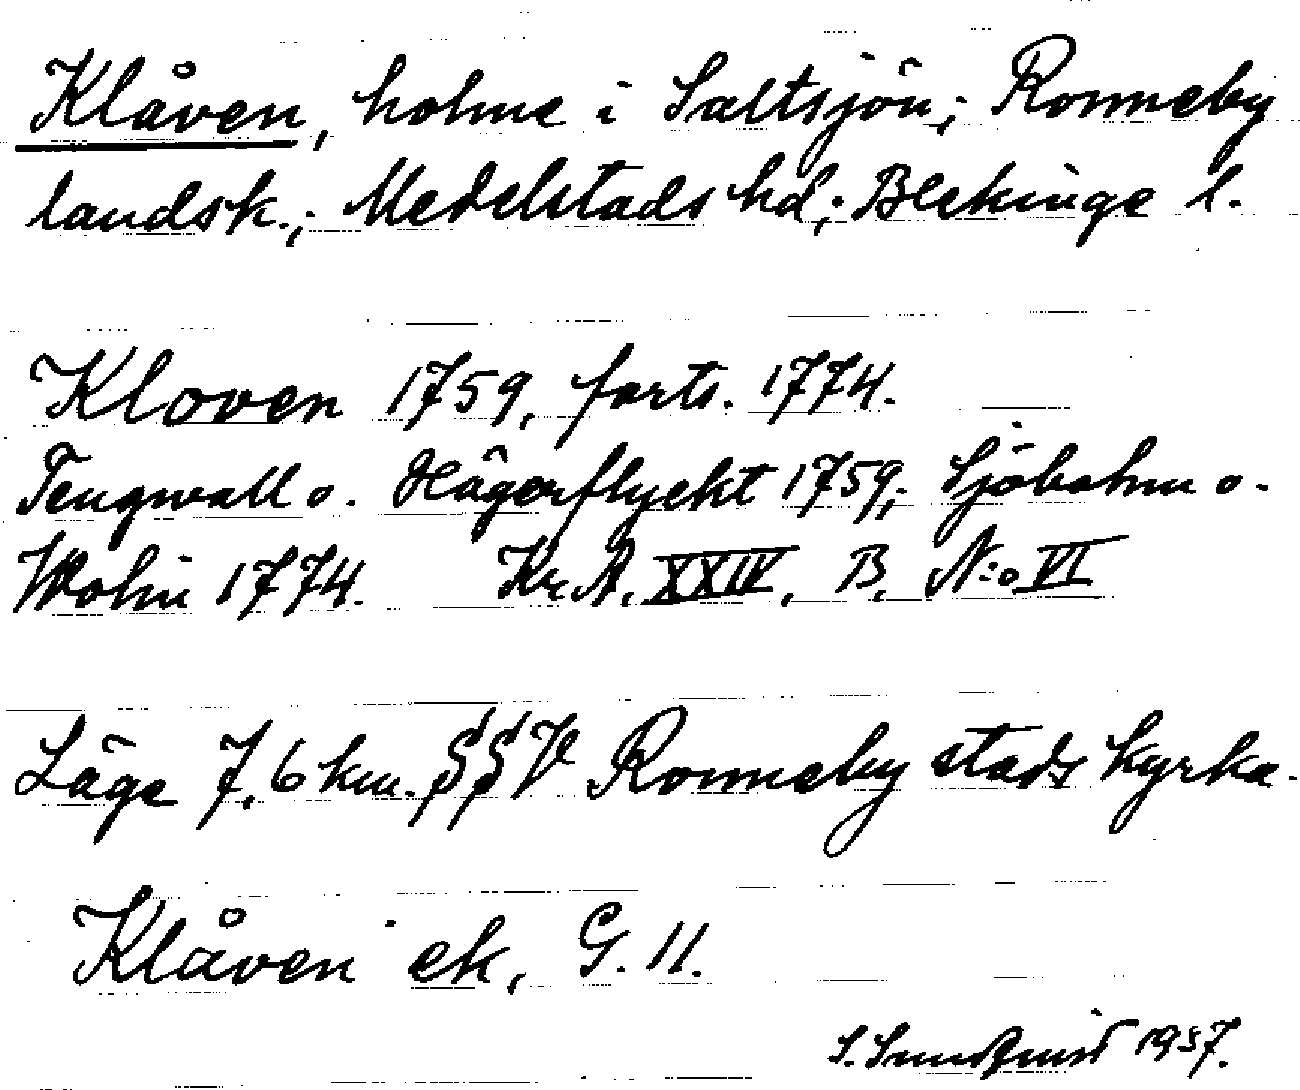 Klåven, holme i Saltsjön; Ronneby
landsk.; Medelstads hd; Blekinge l.
Kloven 1759, forts. 1774.
Tengwall o. Hägerflyckt 1759; Sjöbohm o.
Wohin 1774. Kr.A. XXIV, B, N:o VI
Läge 7,6 km. SSV Ronneby stads kyrka.
Klåven ek, G. 11.
S. Sundquist 1937.